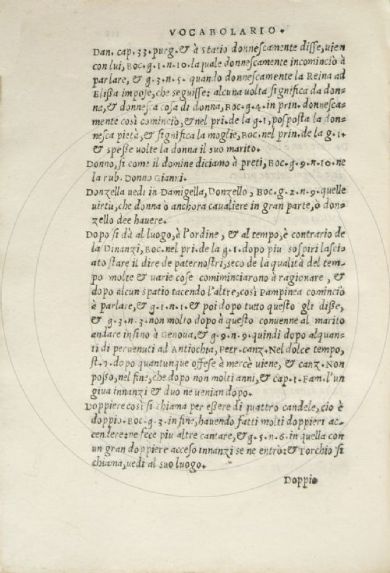 VOCABOLARIO.
Dan. cap. 33. purg. & à statio donnescamente disse, uien
con lui, BOC. g. 1. n. 10. la quale donnescamente incominciò à
parlare, & g. 3. n. 5. quando donnescamente la Reina ad
Elissa impose, che seguisse: alcuna uolta significa da don-
na, & donnesca cosa di donna, BOC. g. 4. in prin. donnesca-
mente così comincio, & nel pri. de la g. 1. posposta la don-
nesca pietà, & significa la moglie, BOC. nel prin. de la g. 1.
& spesse uolte la donna il suo marito.
Donno, si come il domine diciamo à preti, BOC. g. 9. n. 10. ne
la rub. Donno Gianni.
Donzella uedi in Damigella, Donzello, BOC. g. 2. n. 9. quelle
uirtu, che donna o anchora caualiere in gran parte, o don-
zello dee hauere.
Dopo si dà al luogo, à l'ordine, & al tempo, è contrario de
la Dinanzi, BOC. nel pri. de la g. 1. dopo piu sospiri lascia
to stare il dire de paternostri, seco de la qualità del tem-
po molte & uarie cose cominciarono à ragionare, &
dopo alcun spatio tacendo l'altre, così Pampinea cominciò
à parlare, & g. 1. n. 1. & poi dopo tutto questo gli disse,
& g. 3. n. 3. non molto dopo à questo conuenne al marito
andare insino à Genoua, & g. 9. n. 9. quindi dopo alquan-
ti di peruenuti ad Antiochia, Petr. canz. Nel dolce tempo,
st. 7. dopo quantunque offese à mercè uiene, & canz. Non
posso, nel fine, che dopo non molti anni, & cap. 1. Fam. l'un
giua innanzi & duo ne uenian dopo.
Doppiere così si chiama per essere di quattro candele, cio è
doppio. BOC. g. 3. in fine, hauendo fatti molti doppieri ac-
cendere: ne fece piu altre cantare, & g. 5. n. 6. in quella con
un gran doppiere acceso innanzi se ne entro: & Torchio si
chiama, uedi al suo luogo.
Doppio